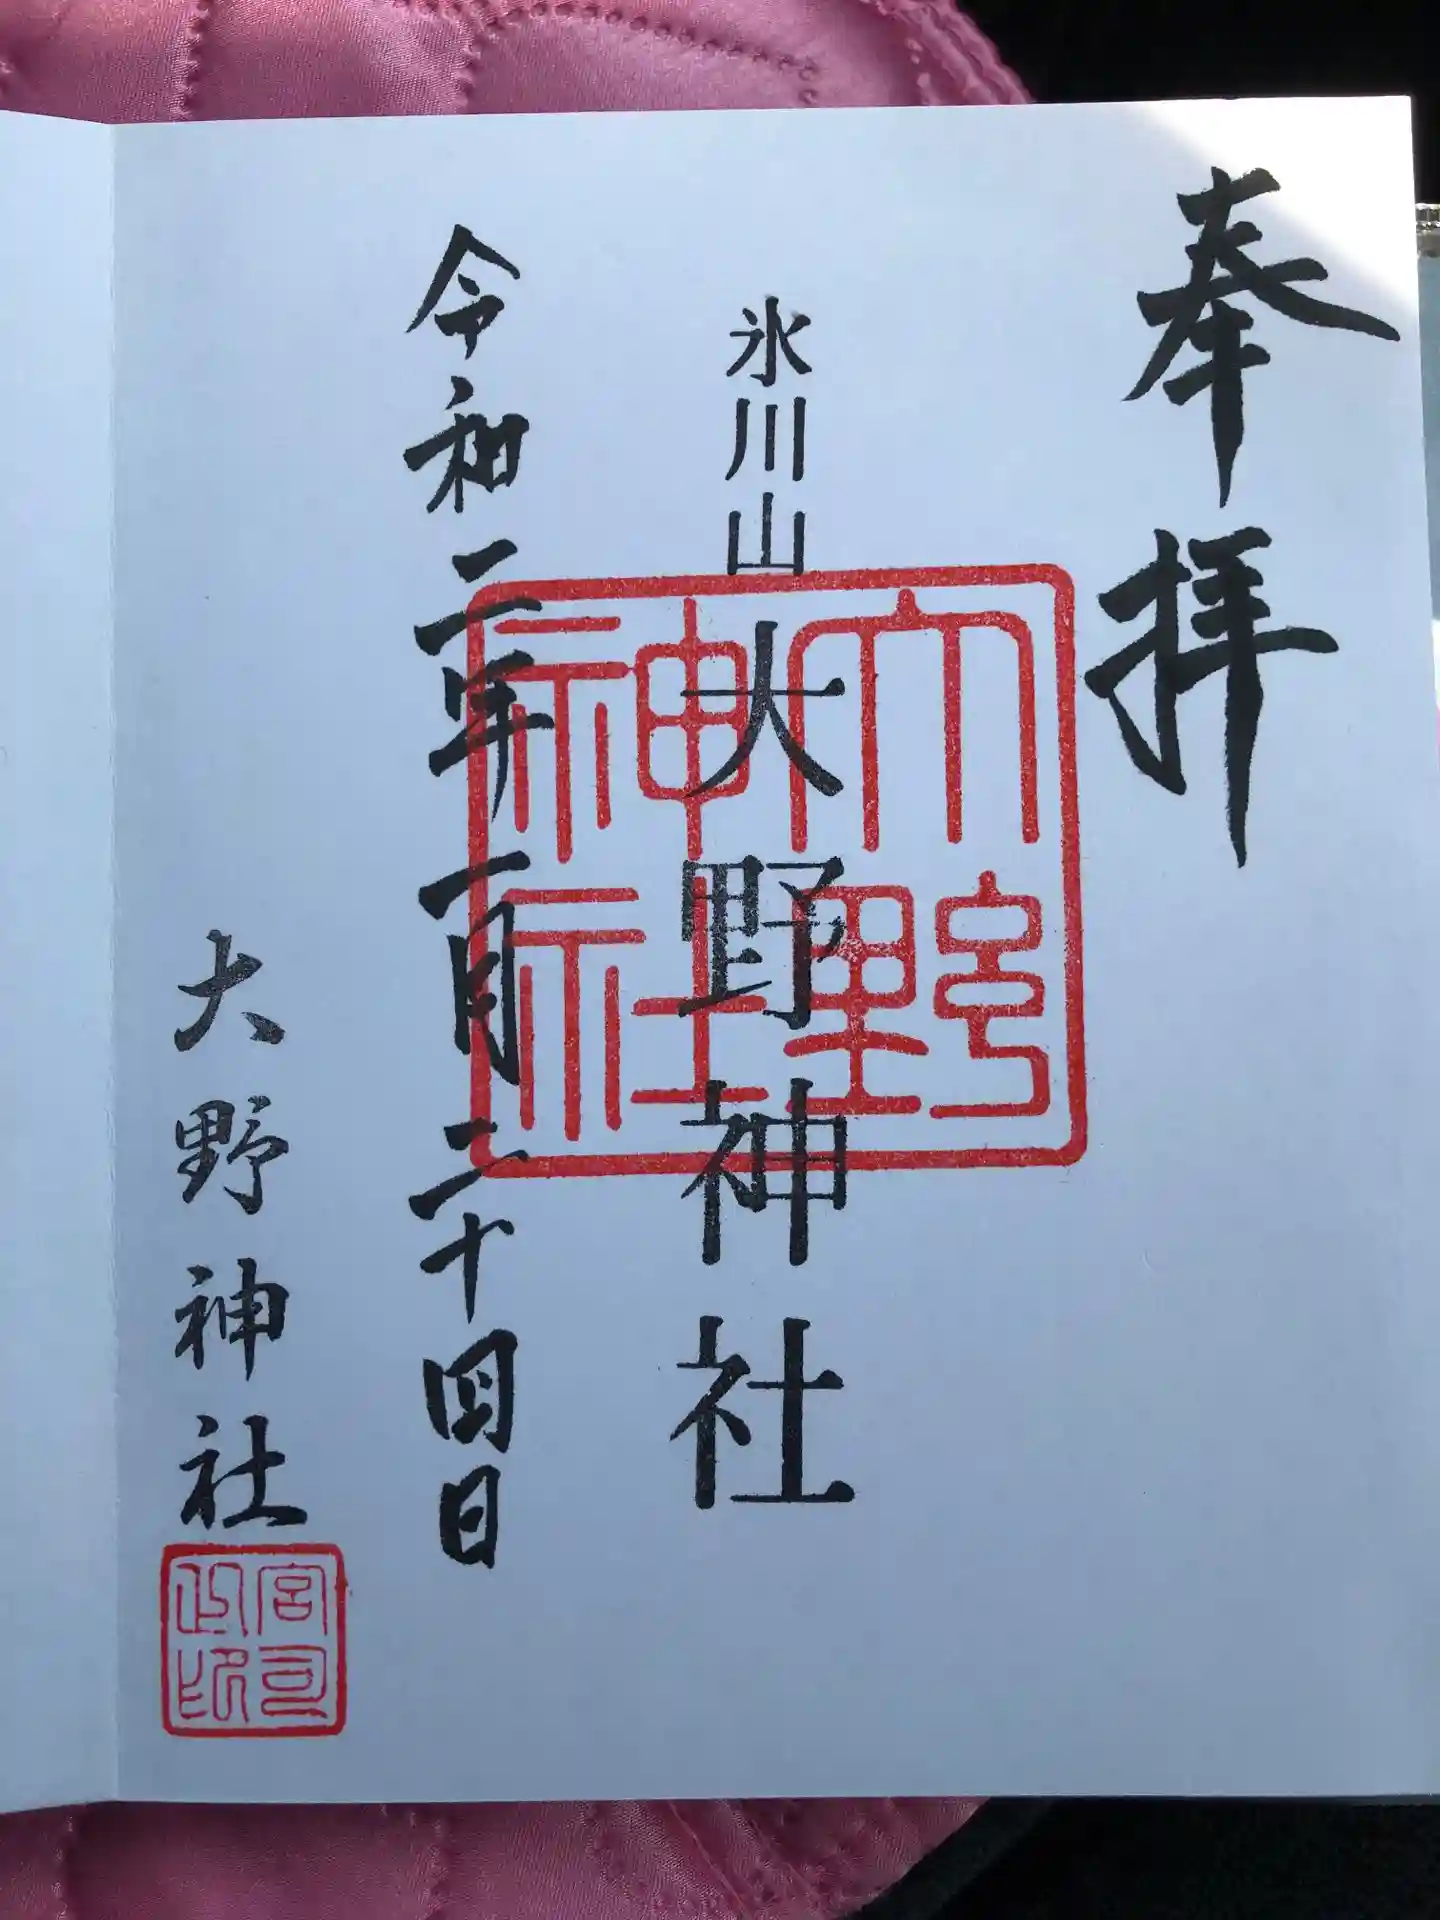 奉拝
氷川山 大野神社
大野
神社
令和二年一月二十四日
大野神社
宮司
印